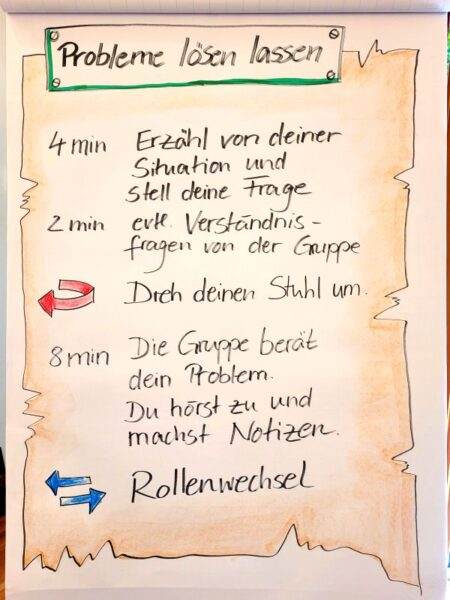 Probleme lösen lassen
4 min Erzähl von deiner
Situation und
stell deine Frage
2 min evtl. Verständnis-
fragen von der Gruppe
Dreh deinen Stuhl um.
8 min Die Gruppe berät
dein Problem.
Du hörst zu und
machst Notizen.
Rollenwechsel